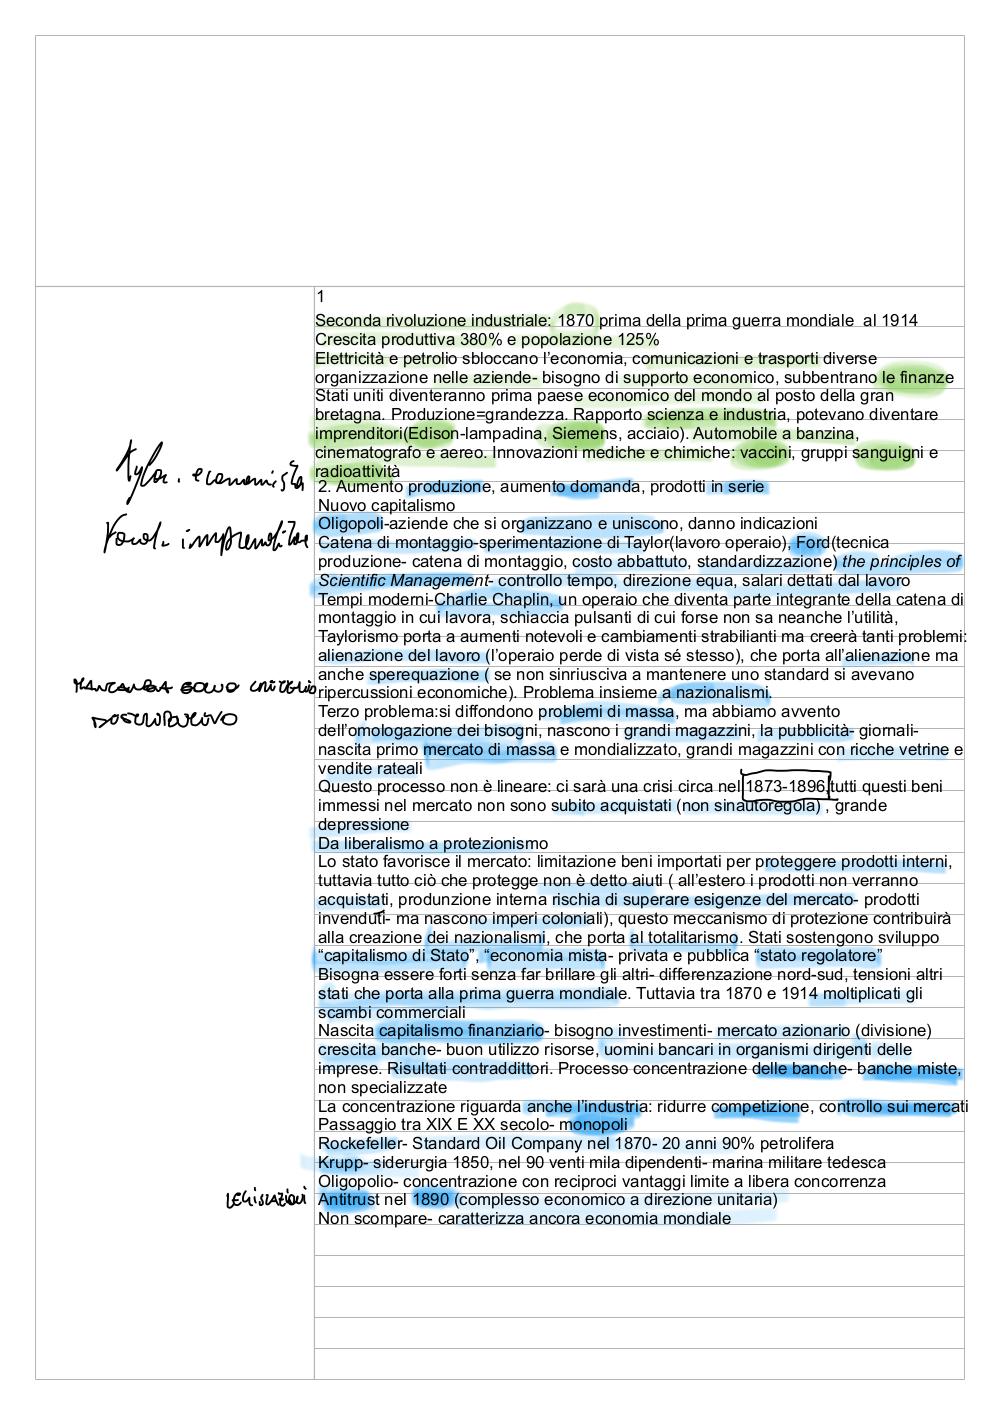 1
Seconda rivoluzione industriale: 1870 prima della prima guerra mondiale  al 1914
Crescita produttiva 380% e popolazione 125%
Elettricità e petrolio sbloccano l'economia, comunicazioni e trasporti diverse
organizzazione nelle aziende- bisogno di supporto economico, subbentrano le finanze
Stati uniti diventeranno prima paese economico del mondo al posto della gran
bretagna. Produzione=grandezza. Rapporto scienza e industria, potevano diventare
imprenditori(Edison-lampadina, Siemens, acciaio). Automobile a banzina,
cinematografo e aereo. Innovazioni mediche e chimiche: vaccini, gruppi sanguigni e
radioattività
Tylor. economista
2. Aumento produzione, aumento domanda, prodotti in serie
Nuovo capitalismo
Oligopoli-aziende che si organizzano e uniscono, danno indicazioni
Ford- imprenditore
Catena di montaggio-sperimentazione di Taylor(lavoro operaio), Ford(tecnica
produzione- catena di montaggio, costo abbattuto, standardizzazione) the principles of
Scientific Management- controllo tempo, direzione equa, salari dettati dal lavoro
Tempi moderni-Charlie Chaplin, un operaio che diventa parte integrante della catena di
montaggio in cui lavora, schiaccia pulsanti di cui forse non sa neanche l'utilità,
Taylorismo porta a aumenti notevoli e cambiamenti strabilianti ma creerà tanti problemi:
alienazione del lavoro (l'operaio perde di vista sé stesso), che porta all'alienazione ma
anche sperequazione ( se non sinriusciva a mantenere uno standard si avevano
ripercussioni economiche). Problema insieme a nazionalismi.
Terzo problema:si diffondono problemi di massa, ma abbiamo avvento
dell'omologazione dei bisogni, nascono i grandi magazzini, la pubblicità- giornali-
nascita primo mercato di massa e mondializzato, grandi magazzini con ricche vetrine e
vendite rateali
Questo processo non è lineare: ci sarà una crisi circa nel 1873-1896,tutti questi beni
immessi nel mercato non sono subito acquistati (non sinautoregola) , grande
depressione
Da liberalismo a protezionismo
Lo stato favorisce il mercato: limitazione beni importati per proteggere prodotti interni,
tuttavia tutto ciò che protegge non è detto aiuti ( all'estero i prodotti non verranno
acquistati, produnzione interna rischia di superare esigenze del mercato- prodotti
invenduti- ma nascono imperi coloniali), questo meccanismo di protezione contribuirà
alla creazione dei nazionalismi, che porta al totalitarismo. Stati sostengono sviluppo
“capitalismo di Stato”, “economia mista- privata e pubblica “stato regolatore”
Bisogna essere forti senza far brillare gli altri- differenzazione nord-sud, tensioni altri
stati che porta alla prima guerra mondiale. Tuttavia tra 1870 e 1914 moltiplicati gli
scambi commerciali
Nascita capitalismo finanziario- bisogno investimenti- mercato azionario (divisione)
crescita banche- buon utilizzo risorse, uomini bancari in organismi dirigenti delle
imprese. Risultati contraddittori. Processo concentrazione delle banche- banche miste,
non specializzate
La concentrazione riguarda anche l'industria: ridurre competizione, controllo sui mercati
Passaggio tra XIX E XX secolo- monopoli
Rockefeller- Standard Oil Company nel 1870- 20 anni 90% petrolifera
Krupp- siderurgia 1850, nel 90 venti mila dipendenti- marina militare tedesca
Oligopolio- concentrazione con reciproci vantaggi limite a libera concorrenza
LEGISLAZIONI
Antitrust nel 1890 (complesso economico a direzione unitaria)
Non scompare- caratterizza ancora economia mondiale